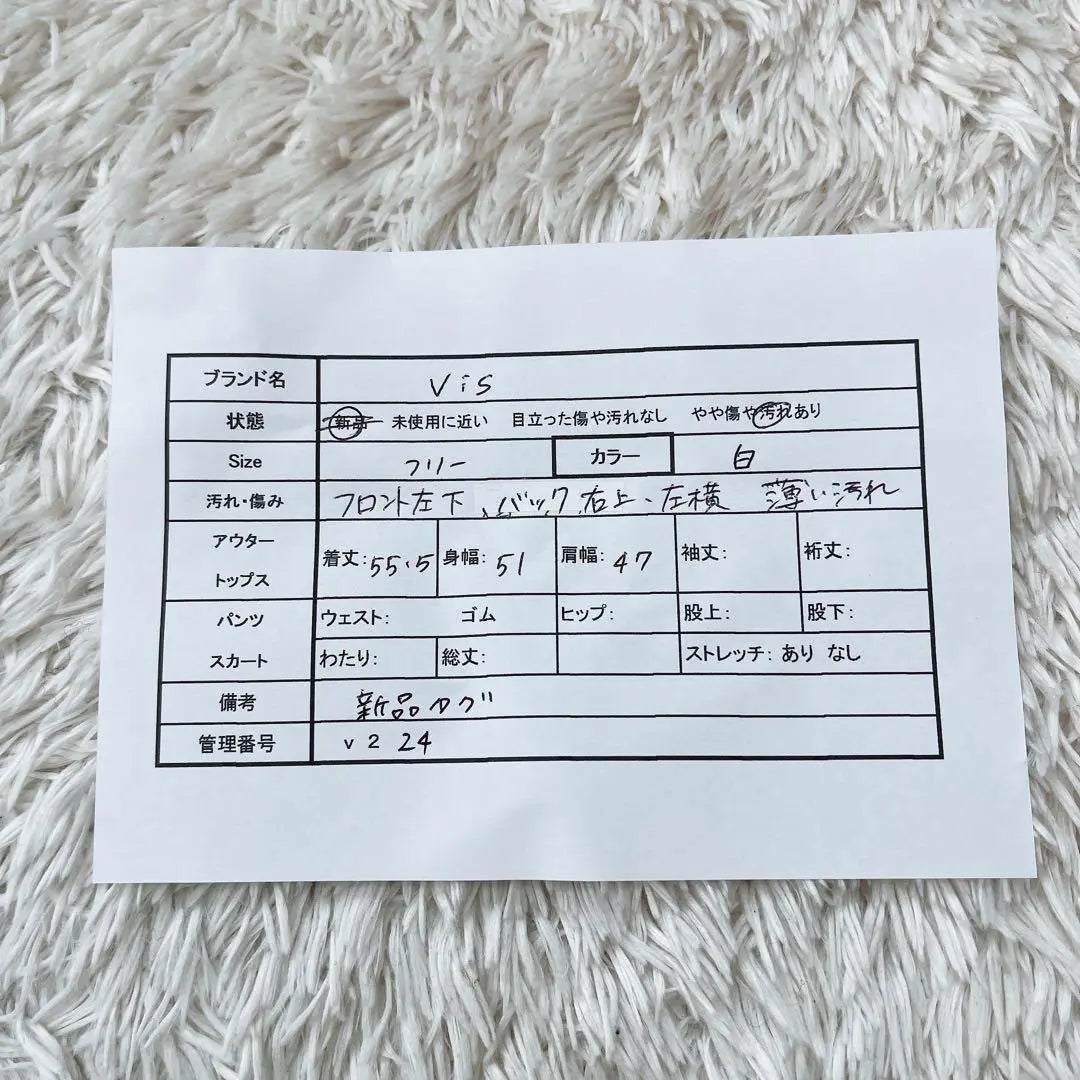 ブランド名 Vis
状態 新品 未使用に近い 目立った傷や汚れなし やや傷や汚れあり
Size フリー カラー 白
汚れ・傷み フロント左下、バック右上・左横 薄い汚れ
アウター トップス 着丈:55.5 身幅:51 肩幅:47 袖丈: 裄丈:
パンツ ウェスト: ゴム ヒップ: 股上: 股下:
スカート わたり: 総丈: ストレッチ: あり なし
備考 新品タグ
管理番号 v 2 24